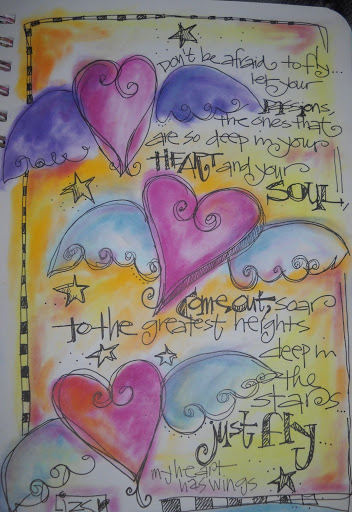 Don't be afraid to fly...
let your
passions,
the ones that
are so deep in your
HEART and your
SOUL,
come out, soar
to the greatest heights
deep in
the
stars...
just fly
my heart
has wings